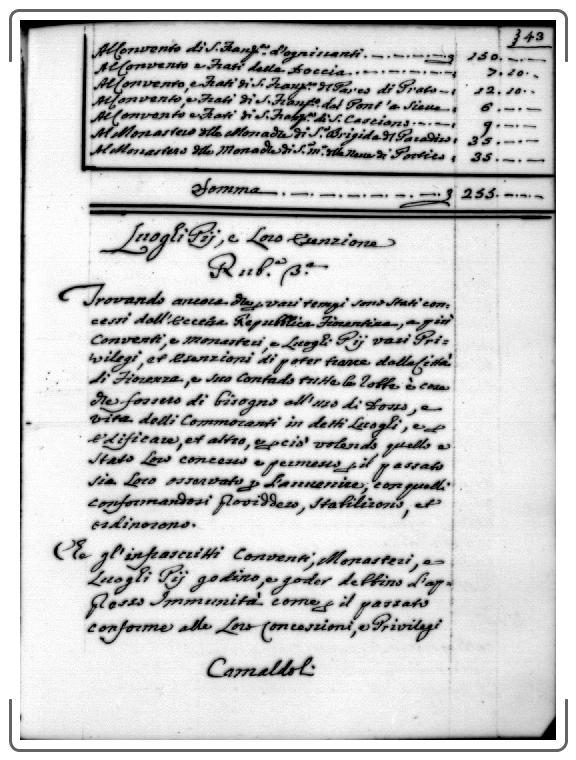 343
Al Convento di S. Franc.co d'ognissanti 3 150.
Al Convento e Frati della Doccia 7.10.
Al Convento, e Frati di S. Franc.co di Parco di Prato 12.10.
Al Convento, e Frati di S. Franc.co del Pont'a Sieve 6
Al Convento e Frati di S. Franc.co di S. Casciano 9
Al Monastero delle Monache di S.ta Brigida di Paradiso 35
Al Monastero delle Monache di S.ta M.a della Neve di Portico 35.
Somma 3 255.
Luoghi Pij, e Loro Esenzione
Rub.ca 3.a
Trovando ancora che p vari tempi sono stati con:
cessi dall'Eccelsa Republica Fiorentina, a piu
Conventi, e monasteri, e Luoghi Pij vari Pri-
vilegi, et Esenzioni di poter trarre dalla Città
di Fiorenza, e suo Contado tutte le Robbe e cose
che fossero di bisogno all'uso di Dosso, e
vita delli Commoranti in detti Luoghi, e p
Edificare, et altro, e p ciò volendo quello e
stato Loro concesso e permesso p il passato
sia Loro osservato p L'avvenire, con quelli
conformandosi providdero, Stabilirono, et
ordinorono.
Che gl'infrascritti Conventi, Monasteri, e
Luoghi Pij godino, e goder debbino d'ap-
presso Immunità come p il passato
conforme alle Loro Concessioni, e Privilegi
Camaldoli